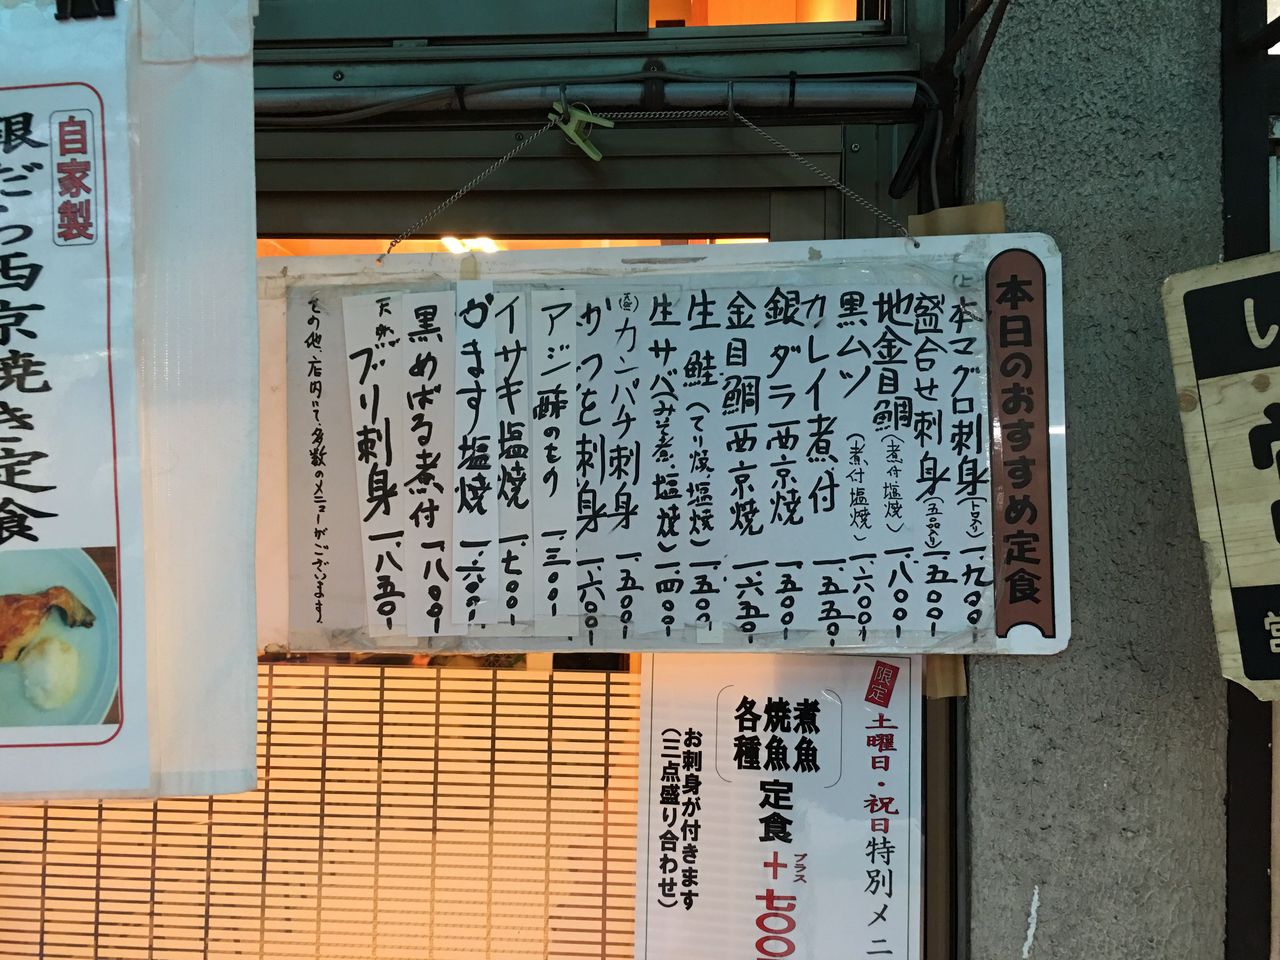 本日のおすすめ定食
(上)本マグロ刺身(トロ入り)一、九〇〇-
盛合せ刺身(五品入り)一、五〇〇-
地金目鯛(煮付 塩焼)一、八〇〇-
黒ムツ(煮付 塩焼)一、六〇〇-
カレイ煮付 一、五五〇-
銀ダラ西京焼 一、五〇〇-
金目鯛西京焼 一、六五〇-
生鮭(てり焼 塩焼)一、五〇〇-
生サバ(みそ煮、塩焼)一、四〇〇-
(天然)カンパチ刺身 一、五〇〇-
かつを刺身 一、六〇〇-
アジ酢のもの 一、三〇〇-
イサキ塩焼 一、七〇〇-
かます塩焼 一、六〇〇-
黒めばる煮付 一、八〇〇-
天然ブリ刺身 一、八五〇-
その他、店内にて多数のメニューがございます。
自家製
銀だら西京焼き定食
限定
土曜日・祝日特別メニ
煮魚
焼魚
各種
定食
+プラス
七〇〇
お刺身が付きます
(三点盛り合わせ)
い
営